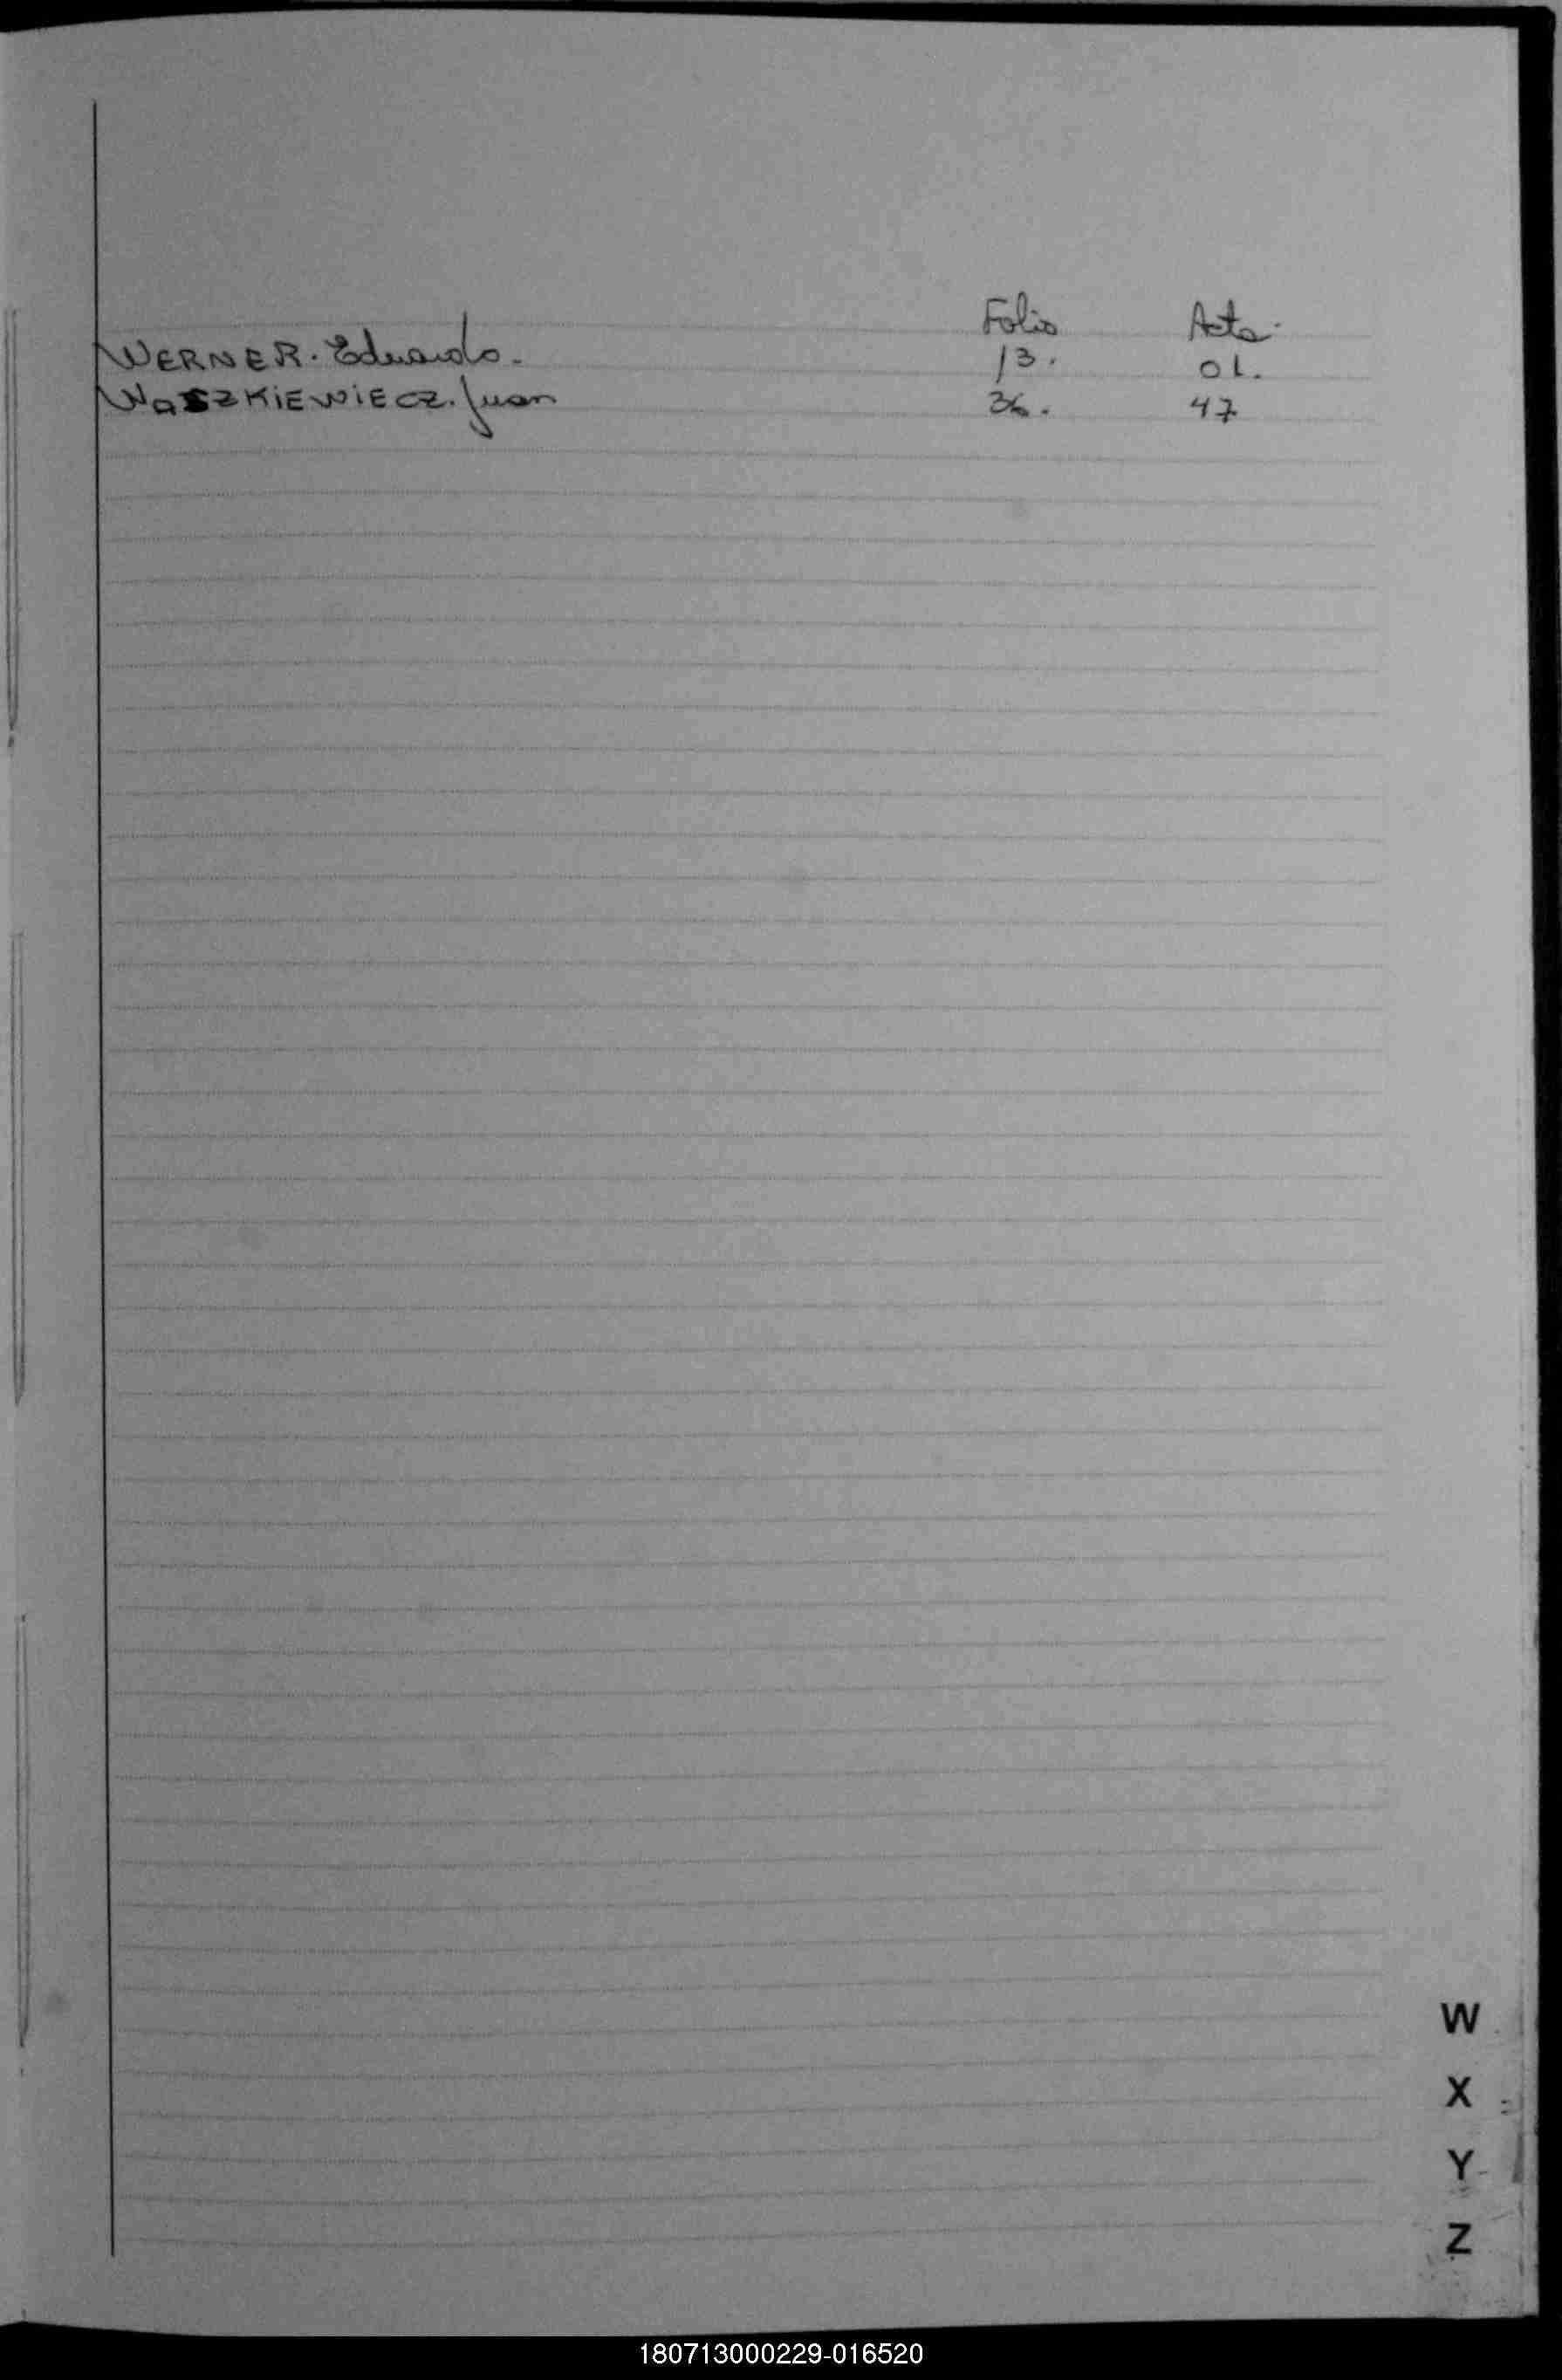 Folio Acta.
WERNER. Eduardo. 13. 01.
WaSZKiEWiECZ. Juan 36. 47
W
X
Y
Z
180713000229-016520